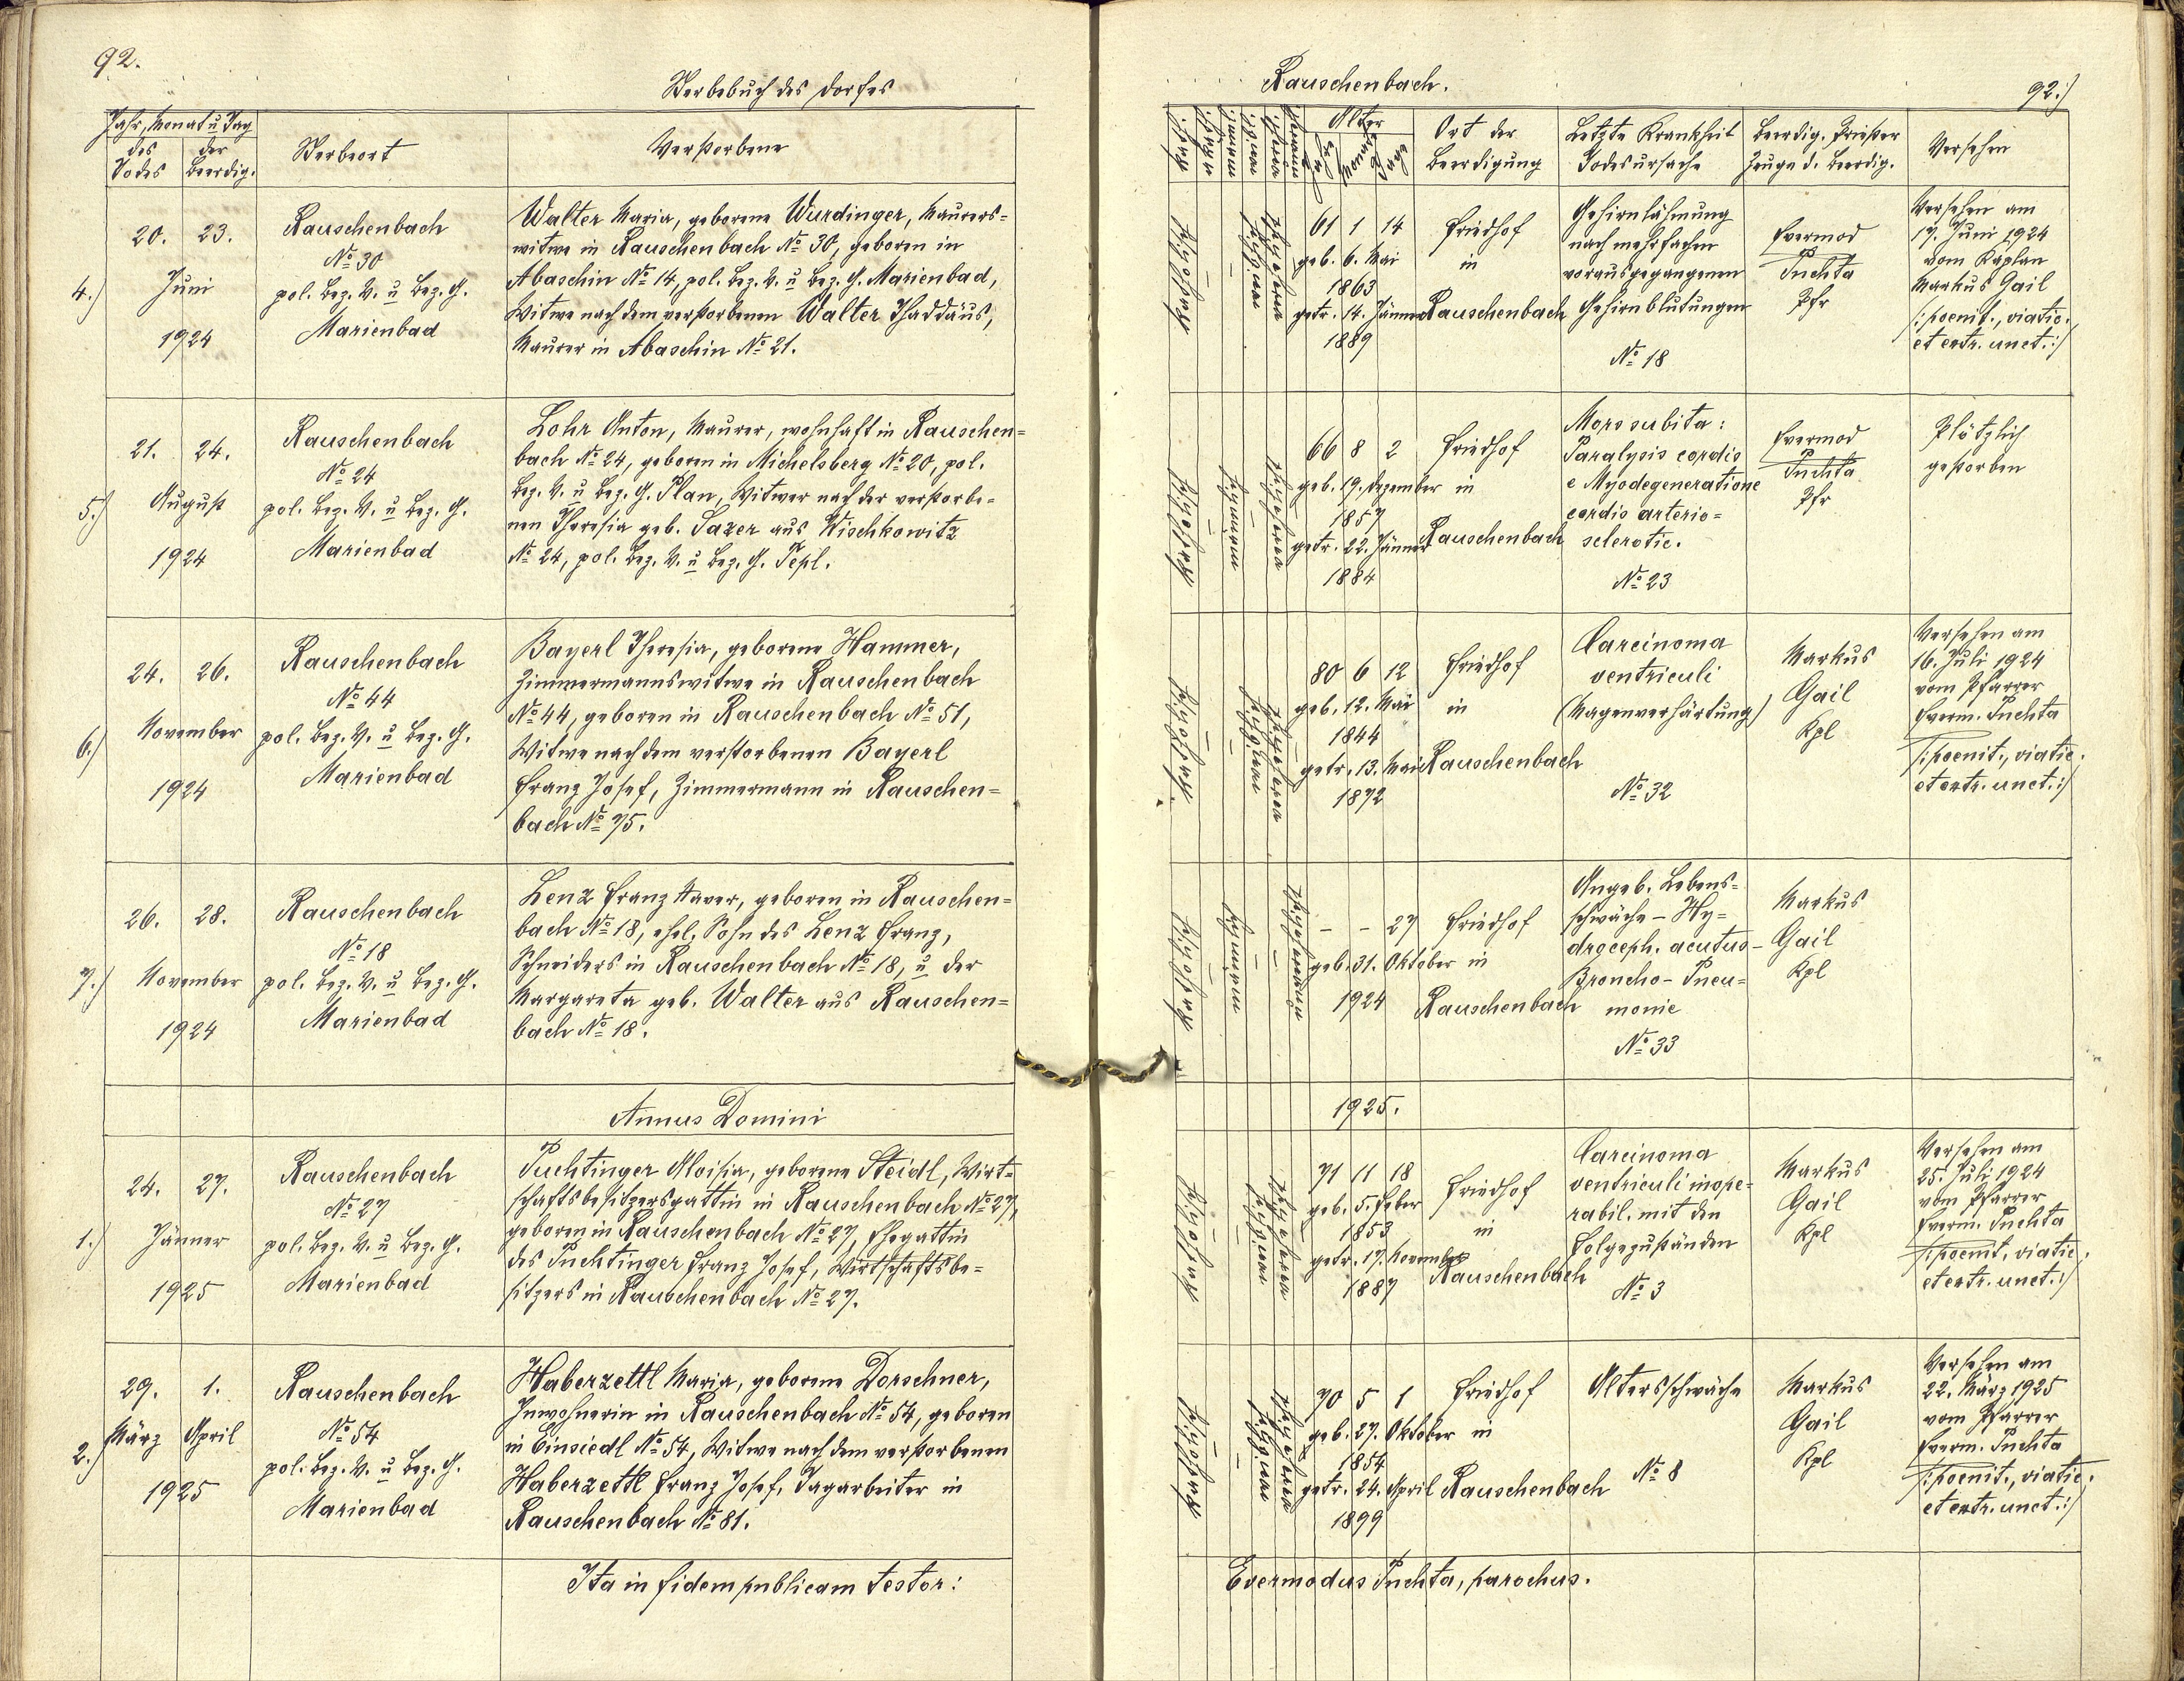 92.
Sterbebuch des Dorfes
Jahr, Monat u Tag
des Todes
der Beerdig.
Sterbeort
Verstorbene
4.)
20. 23.
Juni
1924
Rauschenbach
№ 30
pol. Bez. V. u Bez. G.
Marienbad
Walter Maria, geborene Wurdinger, Maurers=
witwe in Rauschenbach № 30, geboren in
Abaschin № 14, pol. Bez. V. u Bez. G. Marienbad,
Witwe nach dem verstorbenen Walter Thaddäus,
Maurer in Abaschin № 21.
5.)
21. 24.
August
1924
Rauschenbach
№ 24
pol. Bez. V. u Bez. G.
Marienbad
Lohr Anton, Maurer, wohnhaft in Rauschen=
bach № 24, geboren in Michelsberg № 20, pol.
Bez. V. u Bez. G. Plan, Witwer nach der verstorbe=
nen Theresia geb. Sazer aus Wischkowitz
№ 24, pol. Bez. V. u Bez. G. Tepl.
6.)
24. 26.
November
1924
Rauschenbach
№ 44
pol. Bez. V. u Bez. G.
Marienbad
Bayerl Theresia, geborene Hammer,
Zimmermannswitwe in Rauschenbach
№ 44, geboren in Rauschenbach № 51,
Witwe nach dem verstorbenen Bayerl
Franz Josef, Zimmermann in Rauschen=
bach № 75.
7.)
26. 28.
November
1924
Rauschenbach
№ 18
pol. Bez. V. u Bez. G.
Marienbad
Lenz Franz Xaver, geboren in Rauschen=
bach № 18, ehel. Sohn des Lenz Franz,
Schneiders in Rauschenbach № 18, u der
Margareta geb. Walter aus Rauschen=
bach № 18.
Annus Domini
1.)
24. 27.
Jänner
1925
Rauschenbach
№ 27
pol. Bez. V. u Bez. G.
Marienbad
Puchtinger Aloisia, geborene Steidl, Wirt=
schaftsbesitzersgattin in Rauschenbach № 27,
geboren in Rauschenbach № 27, Ehegattin
des Puchtinger Franz Josef, Wirtschaftsbe=
sitzers in Rauschenbach № 27.
2.)
29. 1.
März April
1925
Rauschenbach
№ 54
pol. Bez. V. u Bez. G.
Marienbad
Haberzettl Maria, geborene Dorschner,
Inwohnerin in Rauschenbach № 54, geboren
in Einsiedl № 54, Witwe nach dem verstorbenen
Haberzettl Franz Josef, Tagarbeiter in
Rauschenbach № 81.
Ita in fidem publicam testor:
Rauschenbach.
92.)
Alter
Ort der
Beerdigung
Letzte Krankheit
Todesursache
Beerdig. Priester
Zeuge d. Beerdig.
Versehen
61 1 14
geb. 6. Mai
1863
getr. 14. Jänner
1889
Friedhof
in
Rauschenbach
Gehirnlähmung
nach mehrfachen
vorausgegangenen
Gehirnblutungen
№ 18
Evermod
Puchta
Pfr
Versehen am
17. Juni 1924
vom Kaplan
Markus Gail
/:poenit., viatic.
et extr. unct.:/
66 8 2
geb. 19. Dezember
1857
getr. 22. Jänner
1884
Friedhof
in
Rauschenbach
Mors subita:
Paralysis cordis
e Myodegeneratione
cordis arterio=
sclerotic.
№ 23
Evermod
Puchta
Pfr
Plötzlich
gestorben
80 6 12
geb. 12. Mai
1844
getr. 13. Mai
1872
Friedhof
in
Rauschenbach
Carcinoma
ventriculi
(Magenverhärtung)
№ 32
Markus
Gail
Kpl
Versehen am
16. Juli 1924
vom Pfarrer
Everm. Puchta
/:poenit., viatic.
et extr. unct.:/
- - 27
geb. 31. Oktober
1924
Friedhof
in
Rauschenbach
Angeb. Lebens=
schwäche - Hy=
droceph. acutus -
Broncho - Pneu=
monie
№ 33
Markus
Gail
Kpl
1925.
71 11 18
geb. 5. Feber
1853
getr. 17. November
1887
Friedhof
in
Rauschenbach
Carcinoma
ventriculi inope=
rabil. mit den
Folgezuständen
№ 3
Markus
Gail
Kpl
Versehen am
25. Juli 1924
vom Pfarrer
Everm. Puchta
/:poenit., viatic.
et extr. unct.:/
70 5 1
geb. 27. Oktober
1854
getr. 24. April
1899
Friedhof
in
Rauschenbach
Altersschwäche
№ 8
Markus
Gail
Kpl
Versehen am
22. März 1925
vom Pfarrer
Everm. Puchta
/:poenit., viatic.
et extr. unct.:/
Evermodus Puchta, parochus.